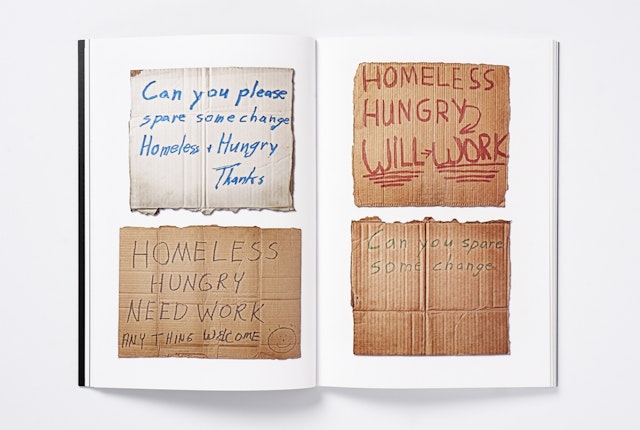 Can you please
spare some change
Homeless + Hungry
Thanks
HOMELESS
HUNGRY
NEED WORK
ANY THING WELCOME
HOMELESS
HUNGRY
WILL WORK
Can you spare
some change